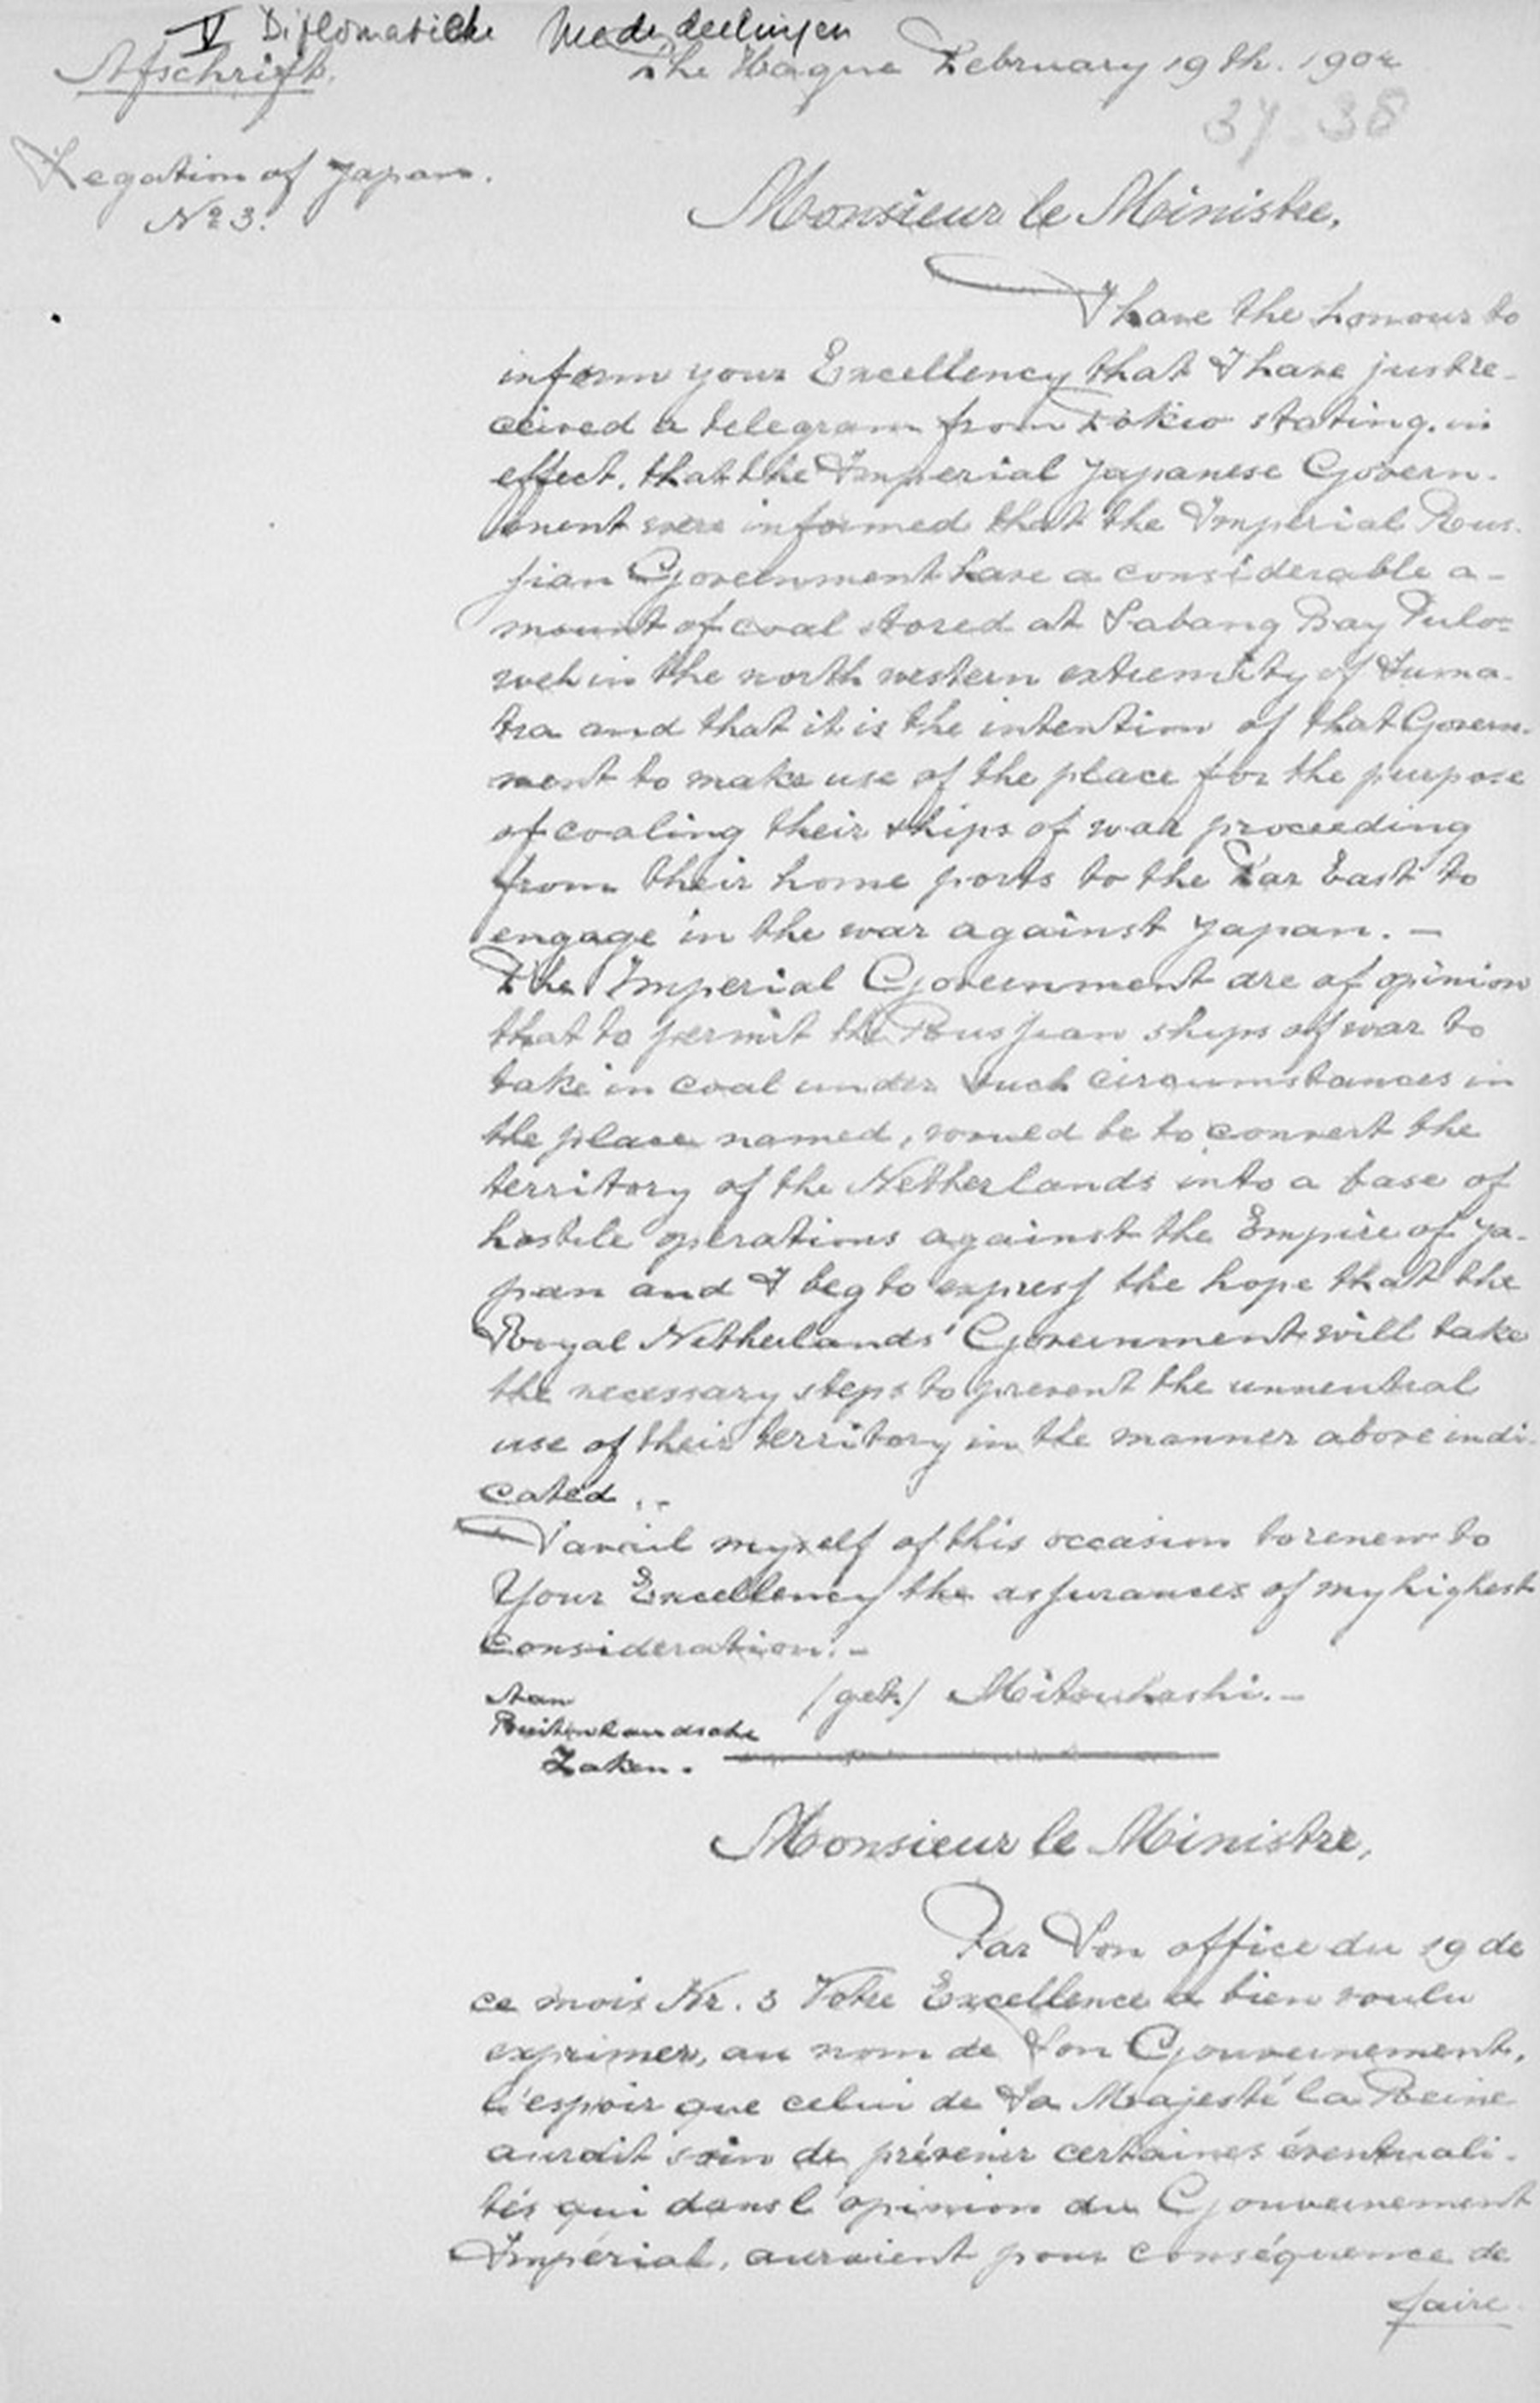 V Diplomatieke Mededeelingen
Afschrift.
The Hague February 19th. 1904
37 38
Legation of Japan.
Nº 3.
Monsieur le Ministre,
I have the honour to
inform your Excellency that I have just re-
ceived a telegram from Tokio stating, in
effect, that the Imperial Japanese Govern-
ment were informed that the Imperial Rus-
sian Government have a considerable a-
mount of coal stored at Sabang Bay Pulo=
weh in the north western extremity of Suma-
tra and that it is the intention of that Govern-
ment to make use of the place for the purpose
of coaling their ships of war proceeding
from their home ports to the Far East to
engage in the war against Japan. —
The Imperial Government are of opinion
that to permit the Russian ships of war to
take in coal under such circumstances in
the place named, would be to convert the
territory of the Netherlands into a base of
hostile operations against the Empire of Ja-
pan and I beg to express the hope that the
Royal Netherlands' Government will take
the necessary steps to prevent the unneutral
use of their territory in the manner above indi-
cated. -
I avail myself of this occasion to renew to
Your Excellency the assurances of my highest
consideration. -
(get.) Mitsuhashi. -
Aan
Buitenlandsche
Zaken.
Monsieur le Ministre,
Par Son office du 19 de
ce mois Nr. 3 Votre Excellence a bien voulu
exprimer, au nom de Son Gouvernement,
l'espoir que celui de Sa Majesté la Reine
aurait soin de prévenir certaines éventuali-
tés qui dans l'opinion du Gouvernement
Impérial, auraient pour conséquence de
faire